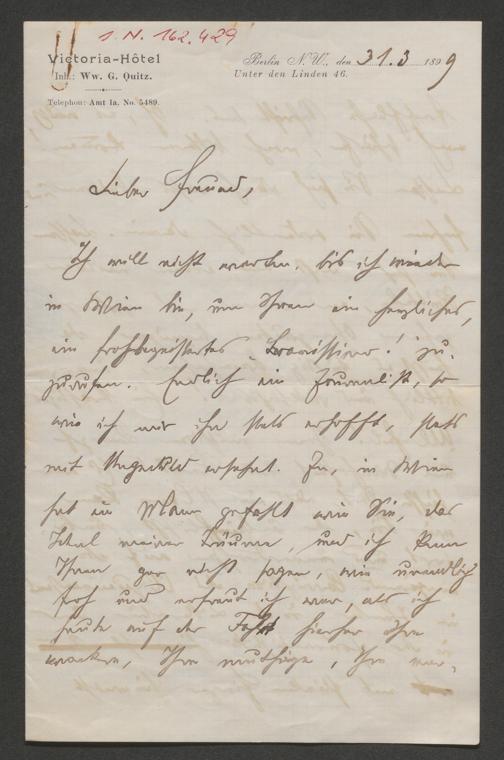 I. N. 162.429
Victoria-Hôtel
Inh.: Ww. G. Quitz.
Telephon: Amt Ia. No. 5489.
Berlin N.W., den 31.3 1899
Unter den Linden 46.
Lieber Freund,
Ich will nicht warten, bis ich wieder
in Wien bin, um Ihnen ein herzliches,
ein frohbegeistertes „Bravissimo!“ zu-
zurufen. Endlich ein Journalist, so
wie ich mir ihn stets erhofft, stets
mit Ungeduld ersehnt. Ja, in Wien
hat ein Mann gefehlt wie Sie, das
Ideal meiner Träume, und ich kann
Ihnen gar nicht sagen, wie unendlich
froh und erfreut ich war, als ich
heute auf der Fahrt hierher Ihre
wackere, Ihre muthige, Ihre